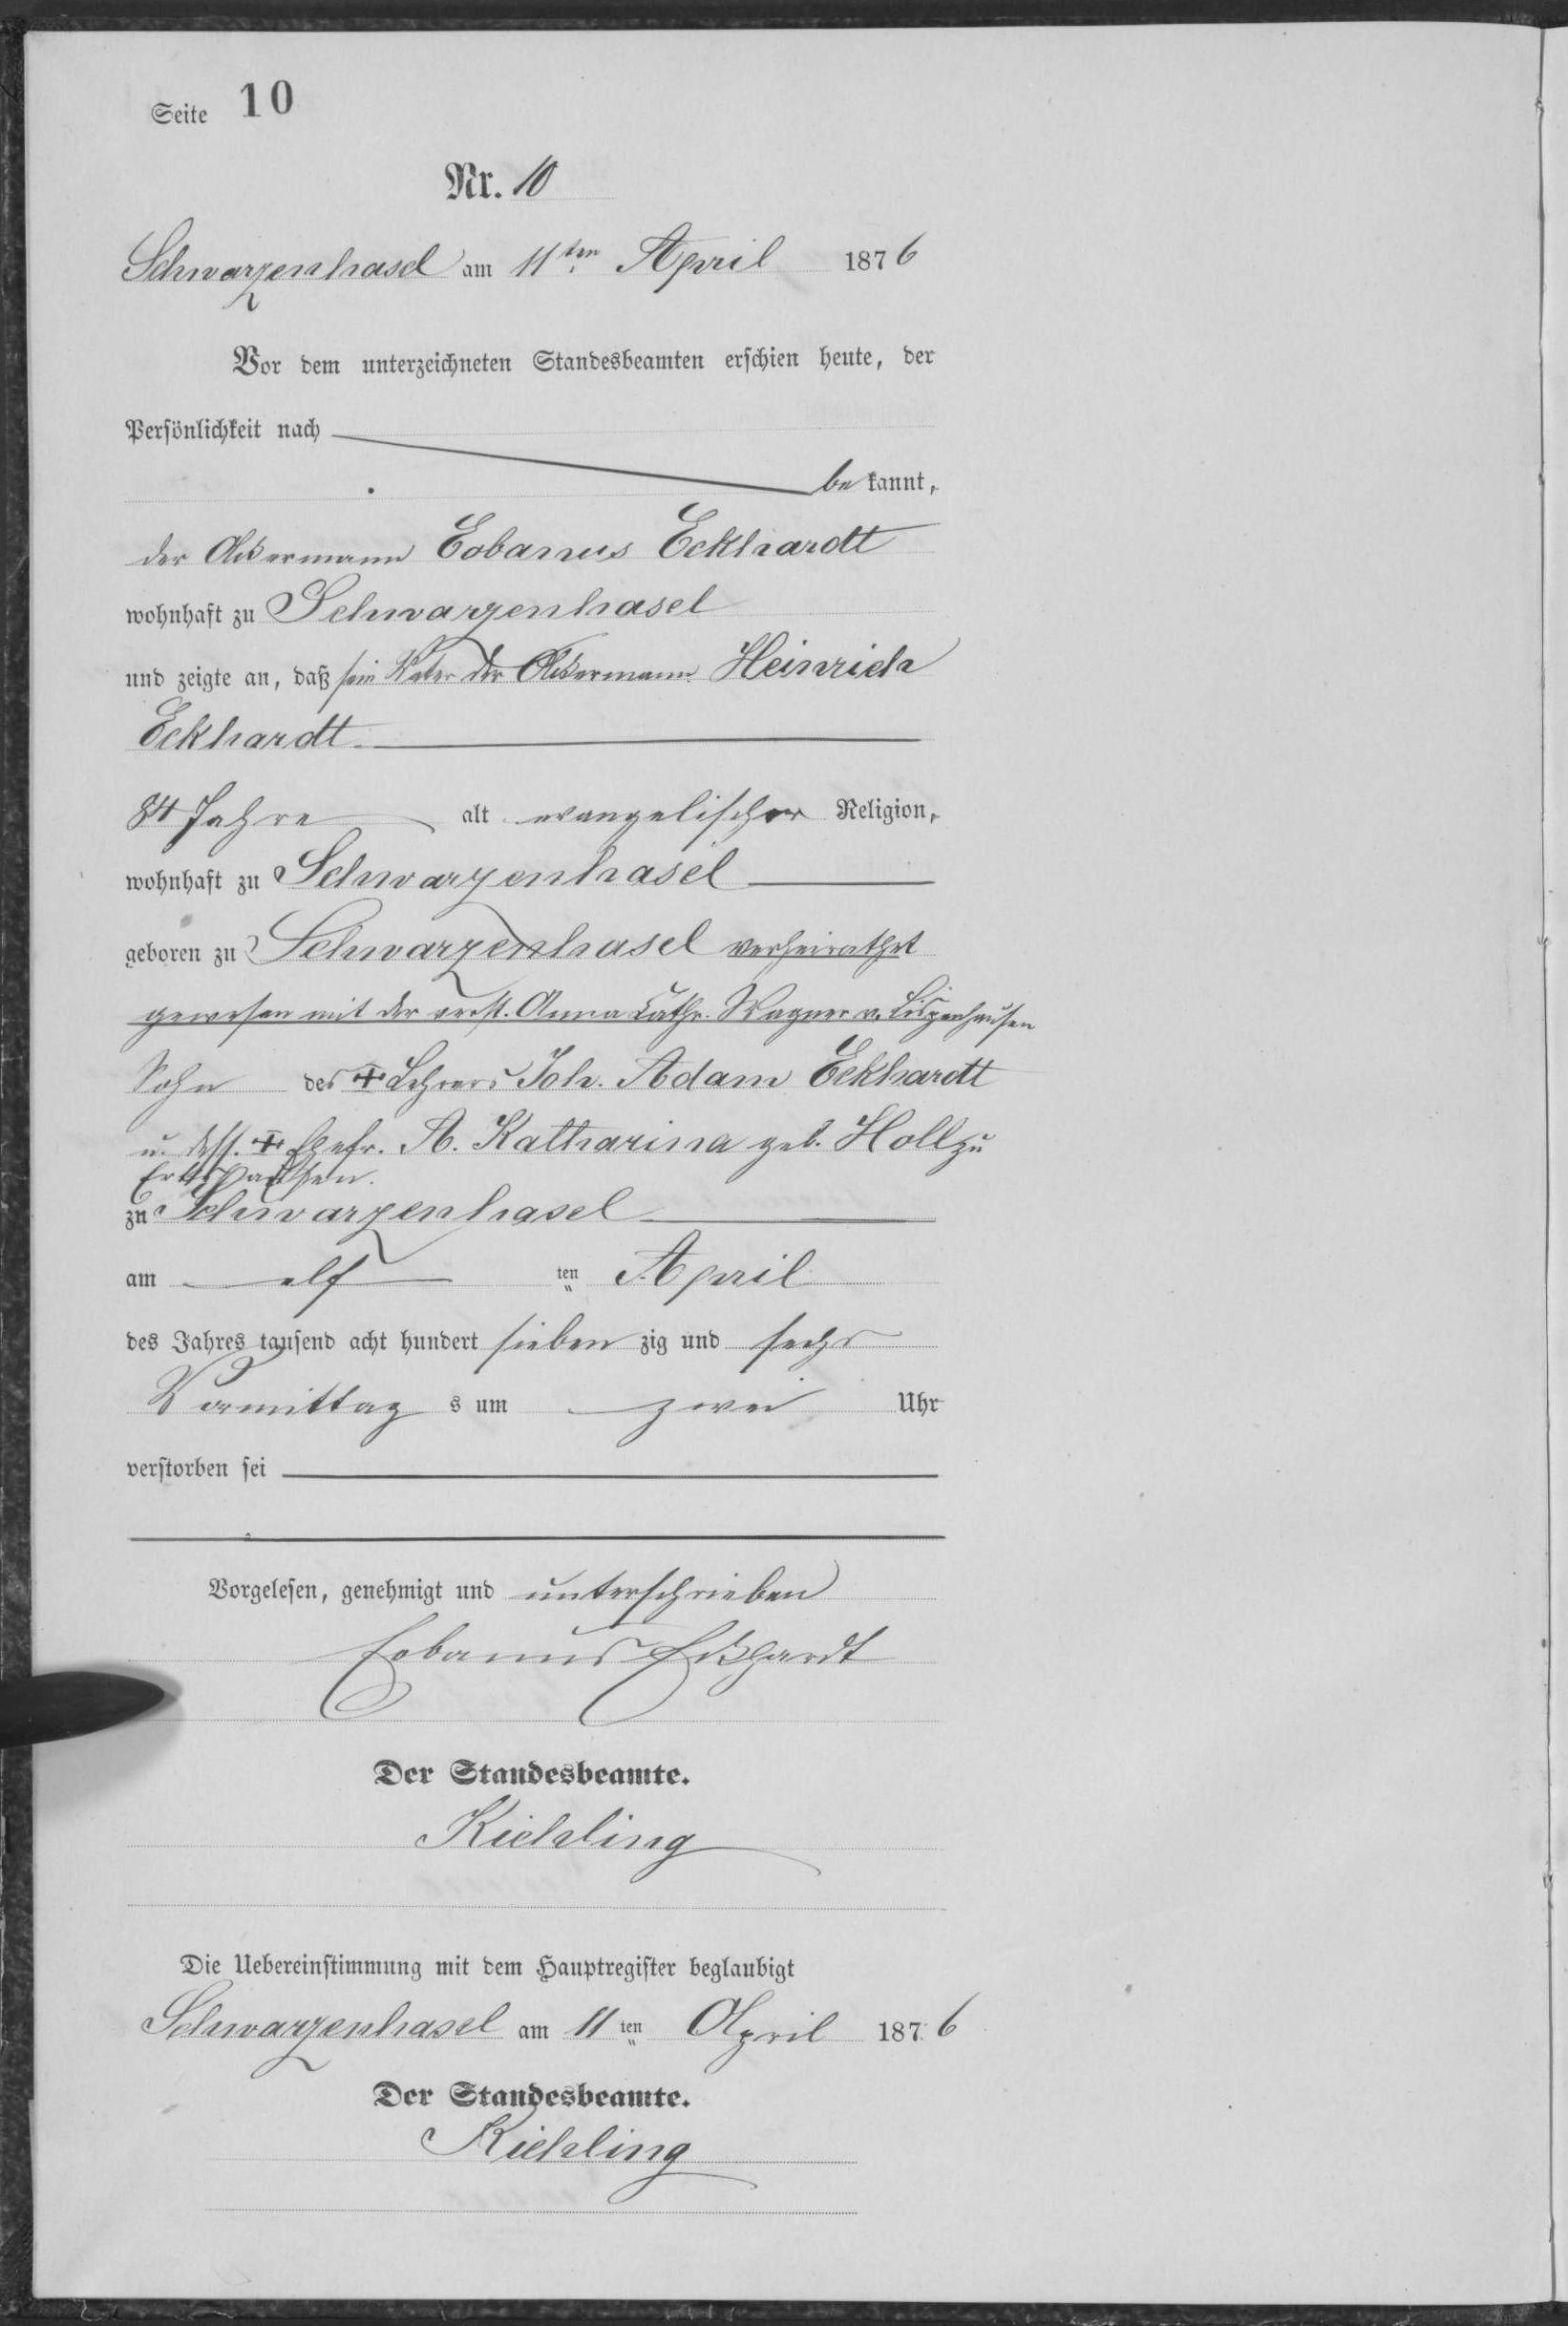 Seite 10
Nr. 10
Schwarzenhasel am 11ten April 1876
Vor dem unterzeichneten Standesbeamten erschien heute, der
Persönlichkeit nach
bekannt,
der Ackermann Eobanus Eckhardt
wohnhaft zu Schwarzenhasel
und zeigte an, daß sein Vater der Ackermann Heinrich
Eckhardt
84 Jahre alt evangelischer Religion,
wohnhaft zu Schwarzenhasel
geboren zu Schwarzenhasel verheirathet
gewesen mit der verst. Anna Cathr. Wagner v. Lispenhausen
Sohn des ✝ Lehrers Joh. Adam Eckhardt
u. dess. ✝ Ehefr. A. Katharina geb. Holl zu
zu Schwarzenhasel
am elf ten April
des Jahres tausend acht hundert sieben zig und sechs
Vormittag s um zwei Uhr
verstorben sei
Vorgelesen, genehmigt und unterschrieben
Eobanus Eckhardt
Der Standesbeamte.
Kiehling
Die Uebereinstimmung mit dem Hauptregister beglaubigt
Schwarzenhasel am 11ten April 1876
Der Standesbeamte.
Kiehling